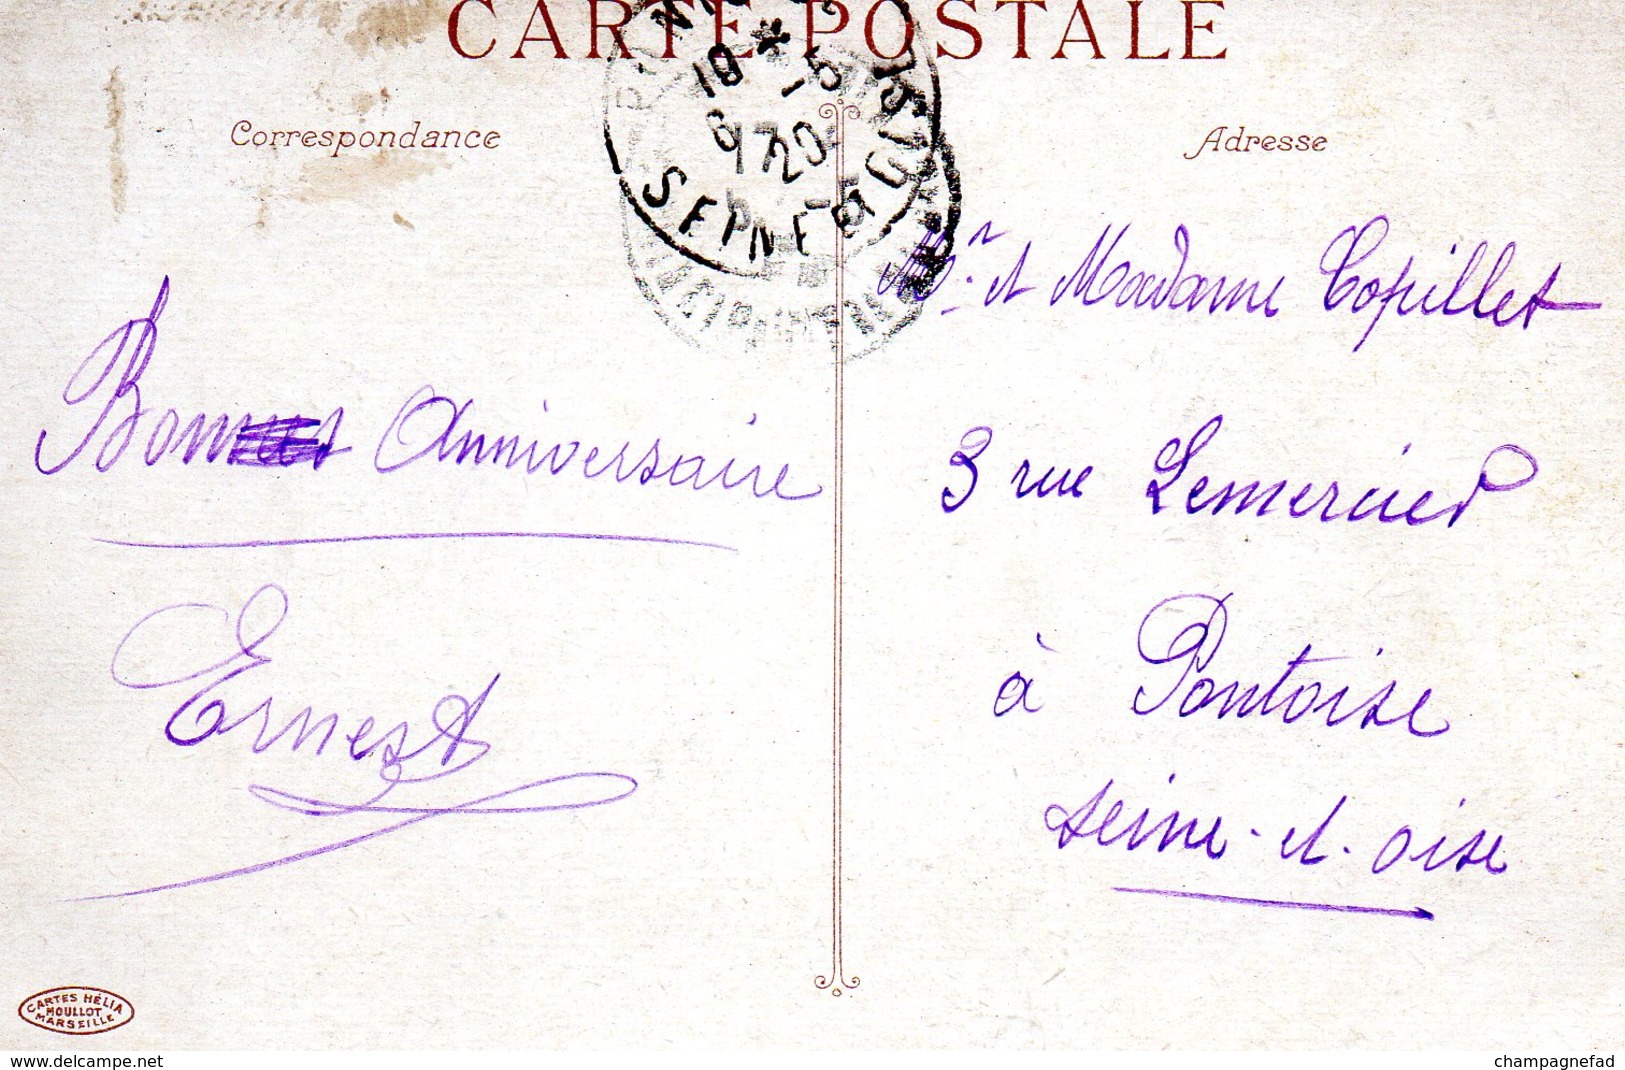 CARTE POSTALE
Correspondance
Adresse
10 * -5
6 20
SEINE
Mr. et Madame Copillet
Bonne Anniversaire
3 rue Lemercier
Ernest
à Pontoise
seine-et-oise
CARTES HÉLIA
MOULLOT
MARSEILLE
www.delcampe.net
champagnefad